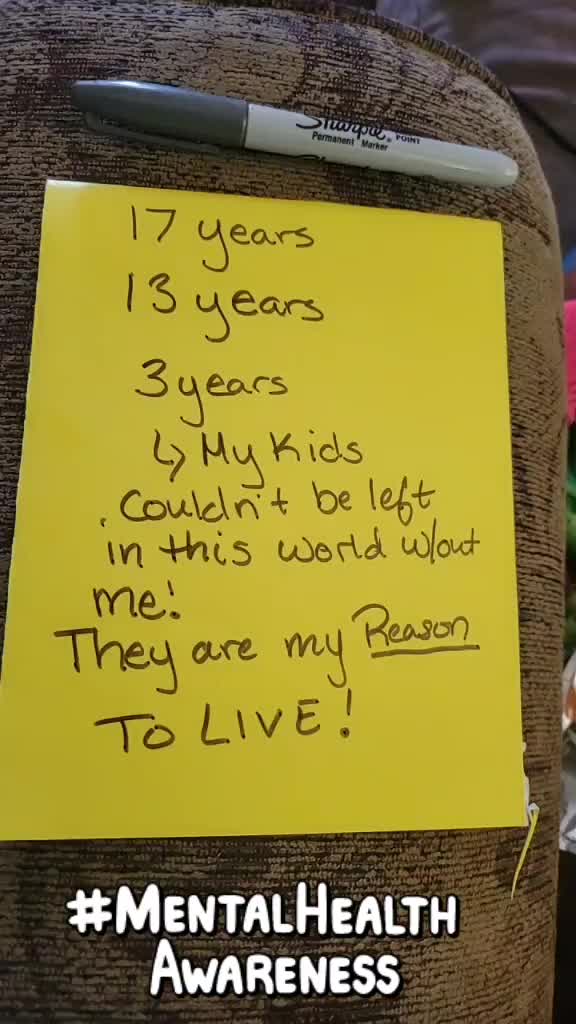 Sharpie® POINT
Permanent Marker
17 years
13 years
3 years
↳ My Kids
. Couldn't be left
in this world w/out
me!
They are my Reason
TO LIVE!
#MENTALHEALTH
AWARENESS